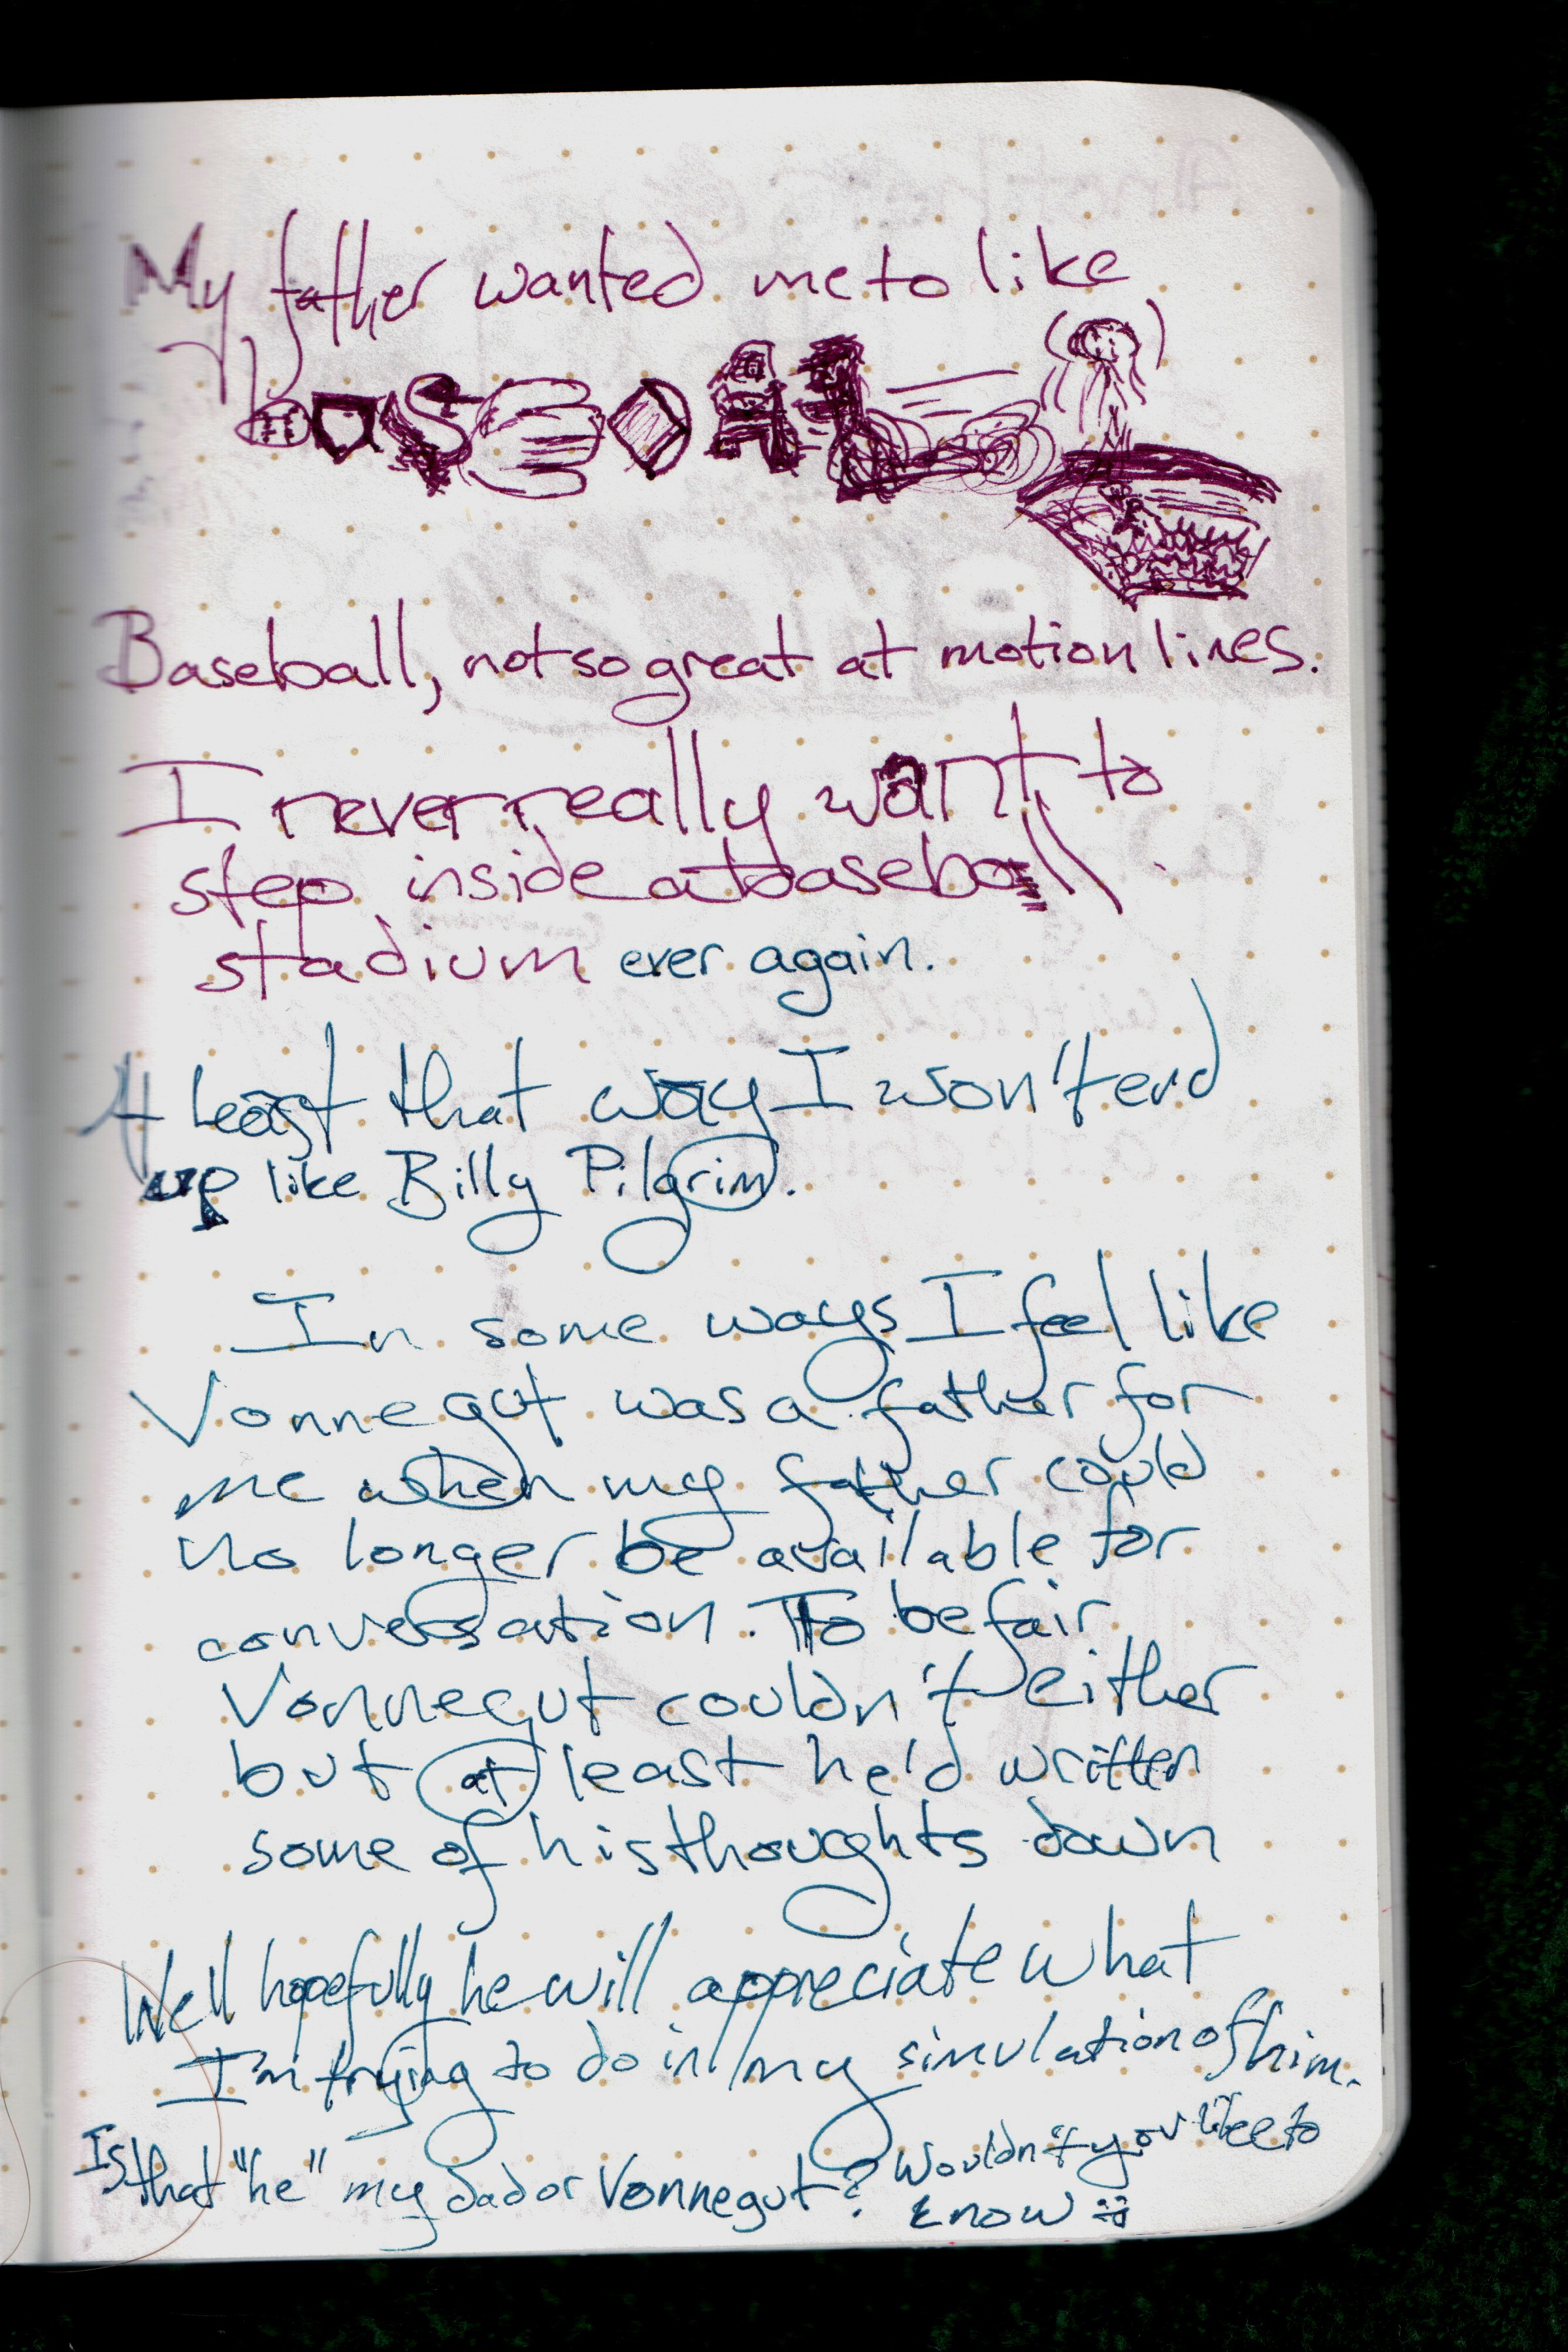 My father wanted me to like
baseball
Baseball, not so great at motion lines.
I never really want to
step inside at baseball
stadium ever again.
At least that way I won't end
up like Billy Pilgrim.
In some ways I feel like
Vonnegut was a father for
me when my father could
no longer be available for
conversation. To be fair
Vonnegut couldn't either
but at least he'd written
some of his thoughts down
Well hopefully he will appreciate what
I'm trying to do in my simulation of him.
Is that "he" my dad or Vonnegut? Wouldn't you like to
know